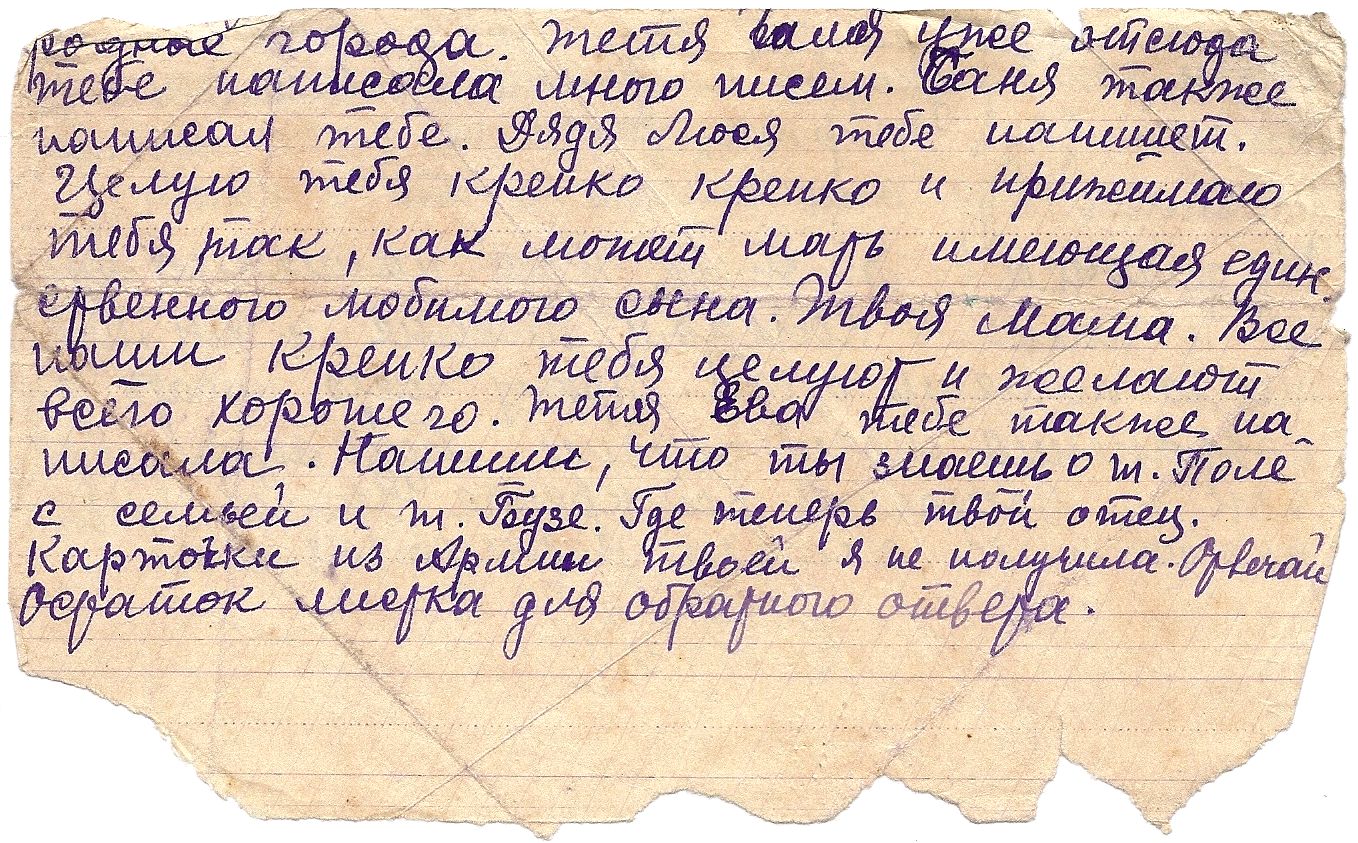 родные города. Тетя Валя уже отсюда
тебе написала много писем. Саня также
написал тебе. Дядя Люся тебе напишет.
Целую тебя крепко крепко и прижимаю
тебя так, как может мать имеющая един
ственного любимого сына. Твоя Мама. Все
наши крепко тебя целуют и желают
всего хорошего. Тетя Ева тебе также на
писала. Напиши, что ты знаешь о т. Поле
с семьей и т. Бузе. Где теперь твой отец.
Карточки из Армии твоей я не получила. Отвечай
Остаток листка для обратного ответа.